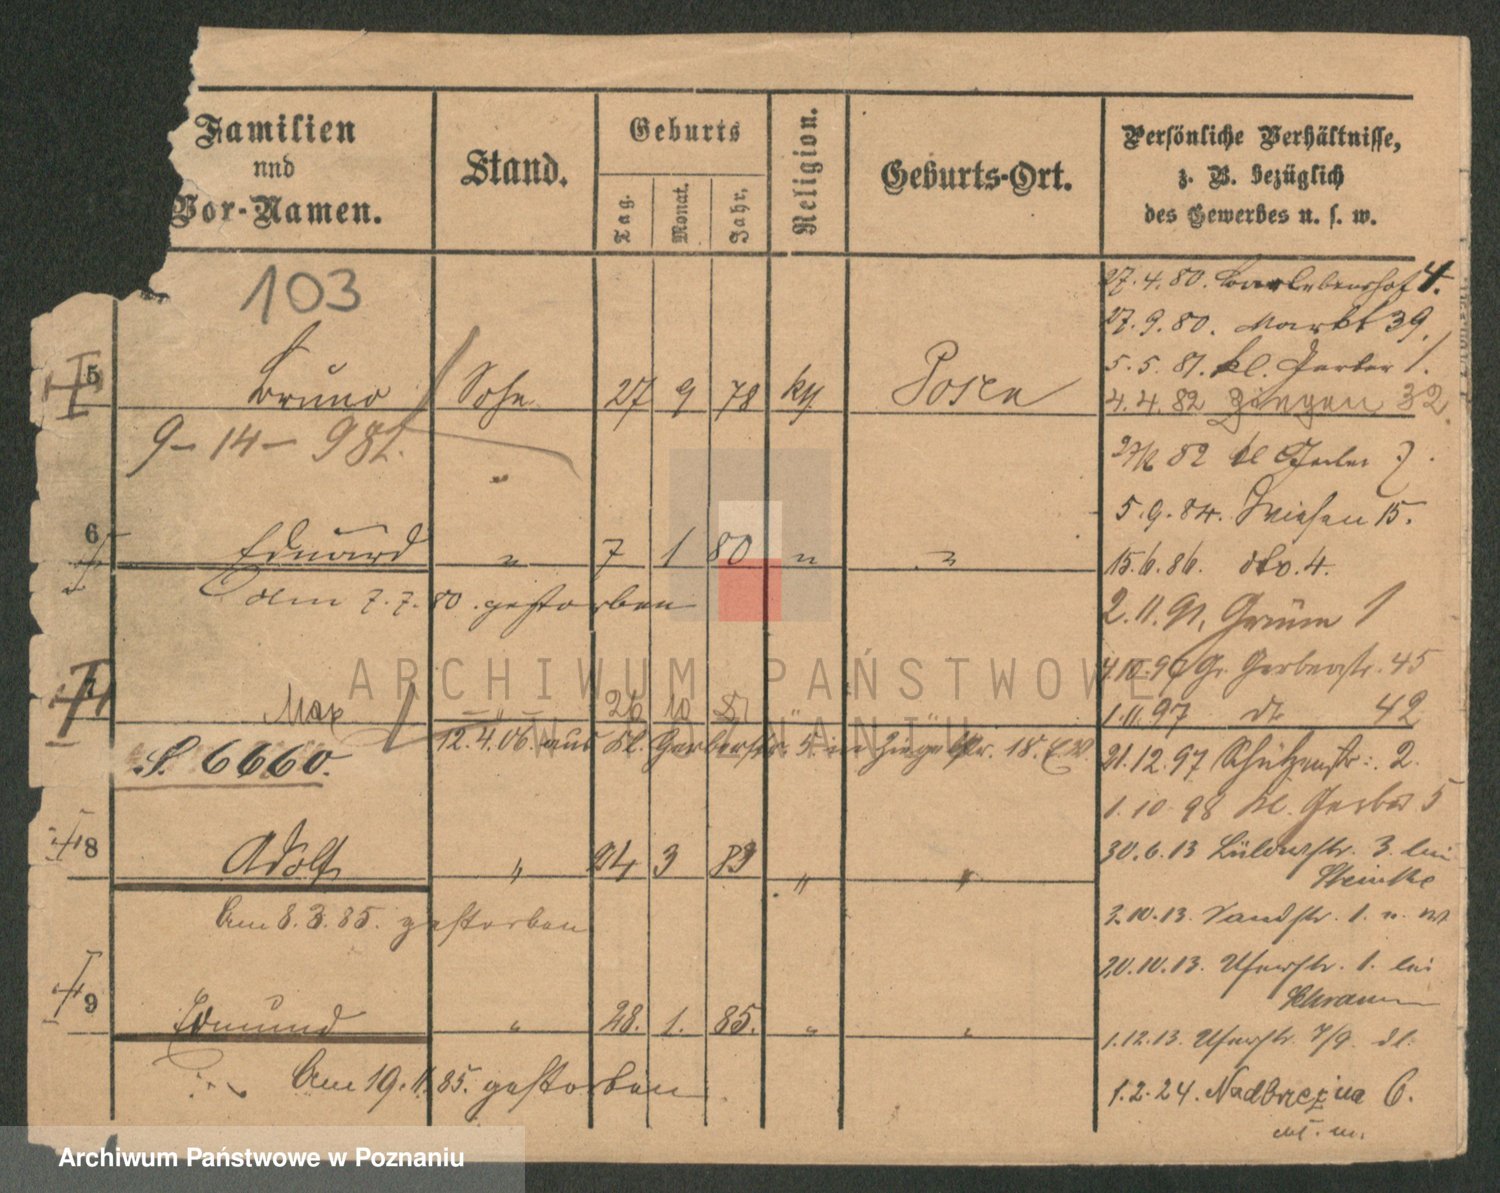 Familien
und
Vor-Namen.
Stand.
Geburts
Tag.
Monat.
Jahr.
Religion.
Geburts-Ort.
Persönliche Verhältnisse,
z. B. bezüglich
des Gewerbes u. s. w.
103
27.4.80. 4.
27.9.80. Markt 39.
5.5.81. kl. Gerber 1.
5 Bruno Sohn 27 9 78 Posen
4.4.82 Ziegen 32.
9-14-98
82 kl Gerber 7.
"
5.9.84. Wiesen 15.
6 Eduard " 7 1 80 " "
15.6.86. dto. 4.
am 7.7.80. gestorben
2.11.91. Grüne 1
Gr. Gerberstr. 45
7 Max " 26 10 81 " "
1.11.97 do 42
S. 6660.
12.4.06. aus Kl. Gerberstr. 5 in Ziegelstr. 18.
21.12.97 Schützenstr. 2.
1.10.98 Kl. Gerber 5
8 Adolf " 24 3 83 " "
30.6.13 3. bei
Am 8.3.85. gestorben
3.10.13. Sandstr. 1.
20.10.13. Uferstr. 1. bei
Schramm
9 Edmund " 28. 1. 85. " "
1.12.13. Uferstr. 7/9.
Am 19.11.85. gestorben
1.2.24. Nadbrzeżna 6.
ARCHIWUM PAŃSTWOWE
W POZNANIU
Archiwum Państwowe w Poznaniu